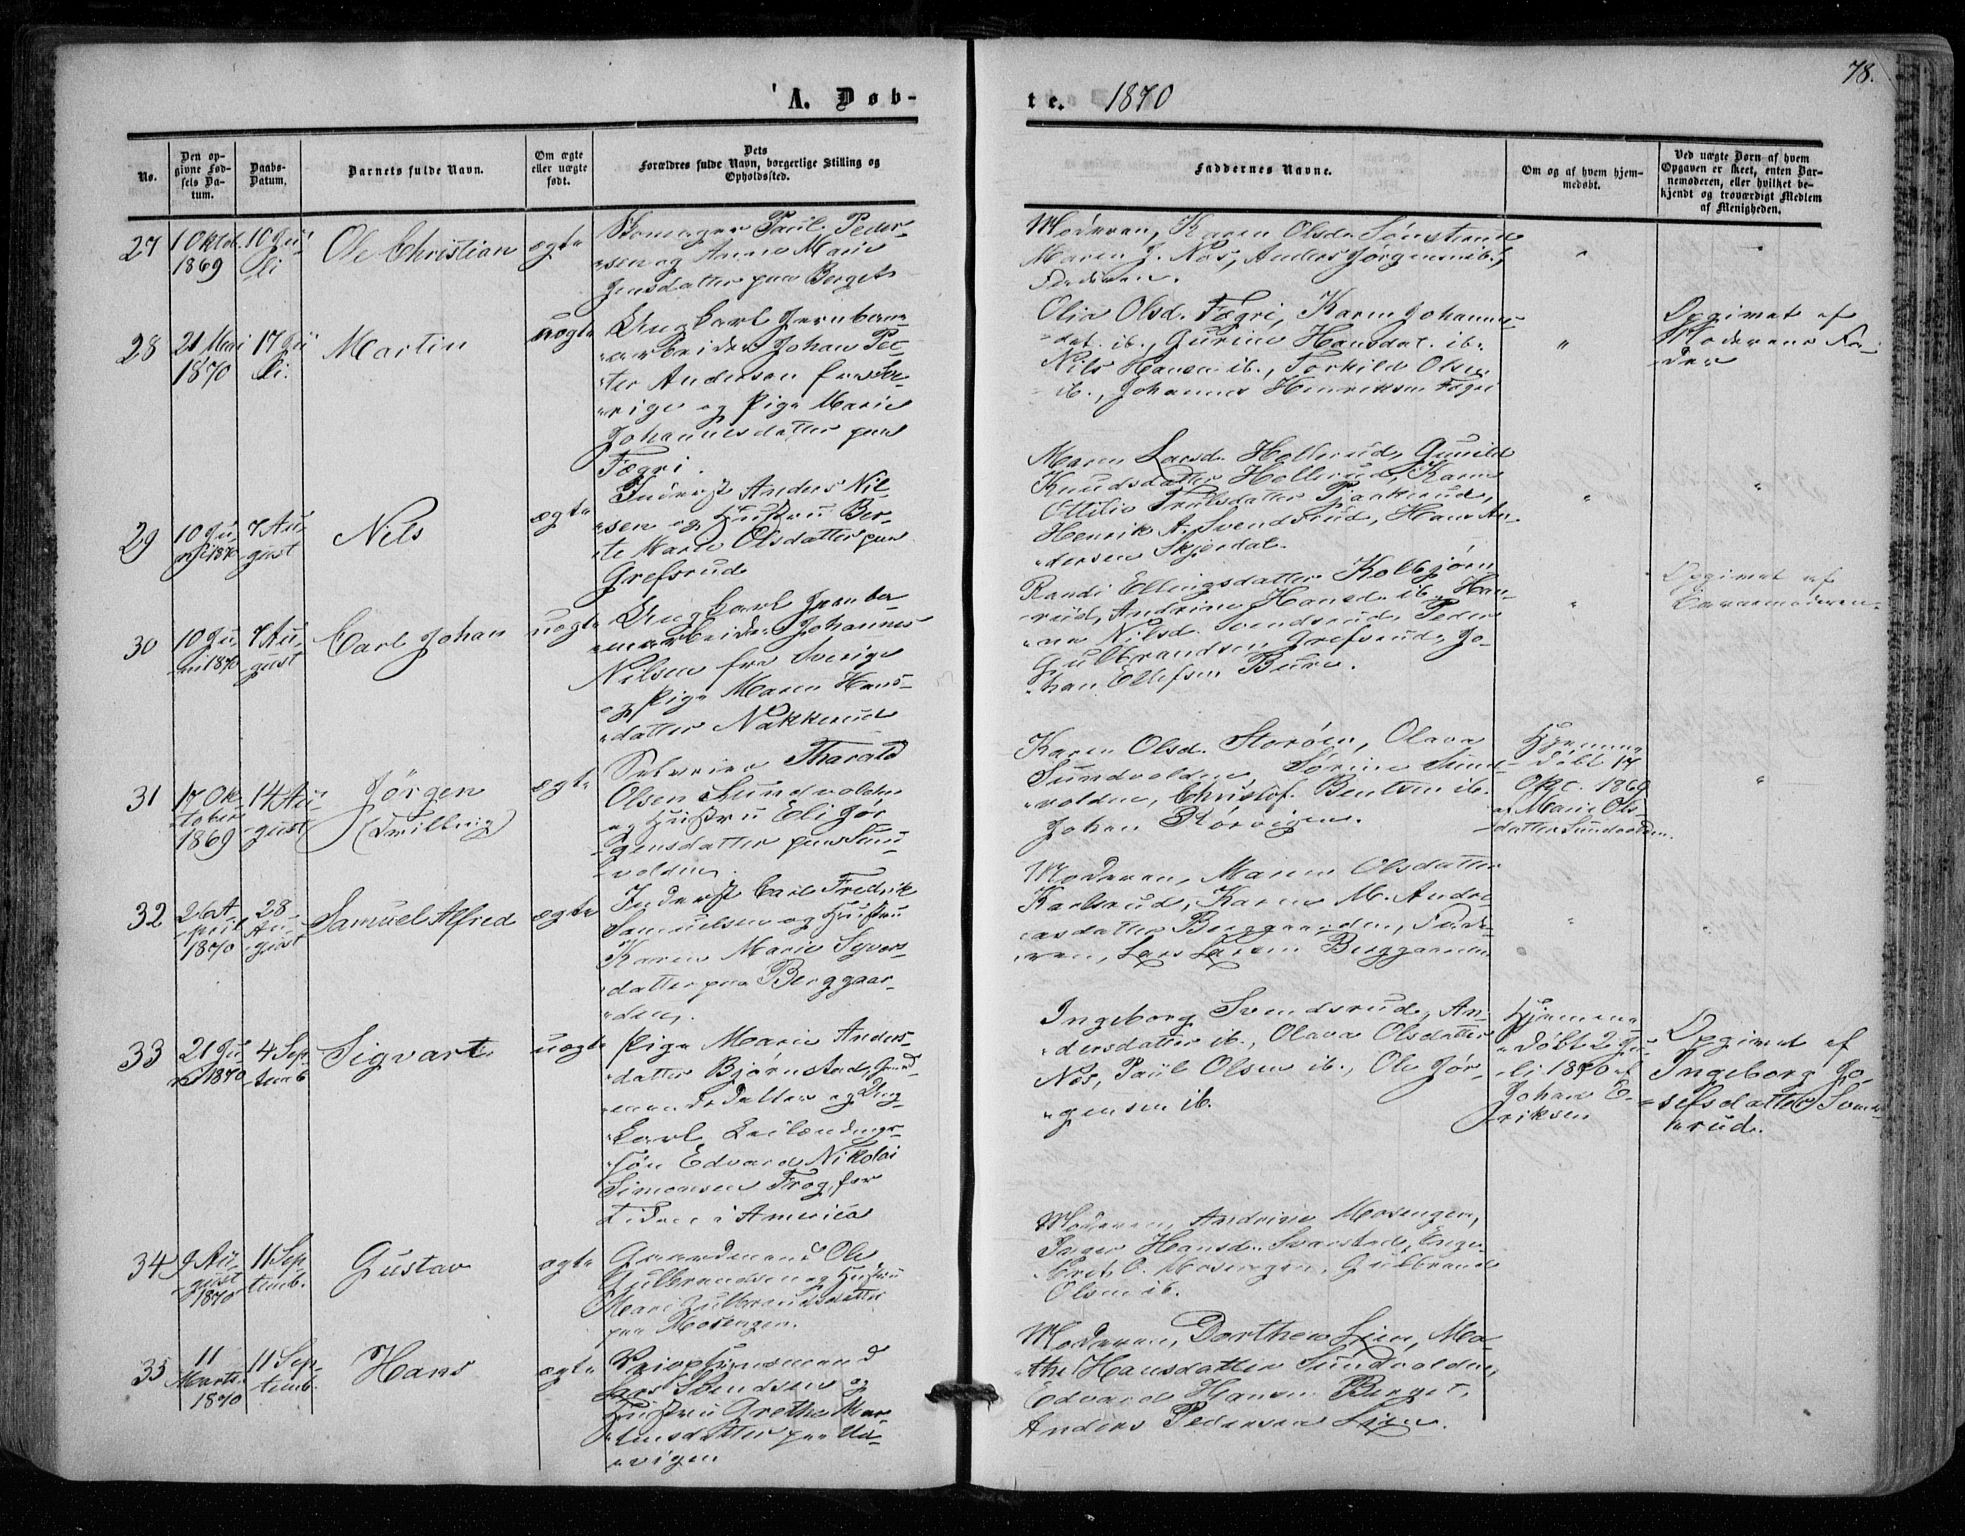 78.
A. Døb-
te. 1870
No.
Den op-
givne Fød-
sels Da-
tum.
Daabs-
Datum.
Barnets fulde Navn.
Om ægte
eller uægte
født.
Dets
Forældres fulde Navn, borgerlige Stilling og
Opholdssted.
Faddernes Navne.
Om og af hvem hjem-
medøbt.
Ved uægte Børn af hvem
Opgaven er skeet, enten Bar-
nemoderen, eller hvilket be-
kjendt og troværdigt Medlem
af Menigheden.
27
1 Oktob.
1869
10 Ju-
li
Ole Christian
ægte
Skomager Paul Peder-
sen og Anne Marie
Jensdatter paa Berget
Moderen, Karen Olsd.
Maren J. Næs, Anders Jørgensen ib.,
Faderen.
28
21 Mai
1870
17 Ju-
li.
Martin
uægte
Ungkarl Jernbane-
arbeider Johan Pet-
ter Anderson fra Sve-
rige og Pige Marie
Johannesdatter paa
Fægri.
Olia Olsd. Fægri, Karen Johannes-
dat. ib., Gurine Hansdat. ib.
Nils Hansen ib., Torkild Olsen
ib., Johannes Henriksen Fægri
"
Opgivet af
Moderens Fa-
der
29
10 Ju-
ni 1870
7 Au-
gust
Nils
ægte
Inderst Anders Nil-
sen og Hustru Ber-
te Marie Olsdatter paa
Grefsrud
Maren Larsd. Hollerud, Gunild
Knudsdatter Hollerud, Karen
Ottilie Trulsdatter
Henrik A. Svendsrud, Hans An-
dersen Skjerdal.
30
10 Ju-
ni 1870
7 Au-
gust
Carl Johan
uægte
Ungkarl Jernba-
nearbeider Johannes
Nilsen fra Sverige
og Pige Maren Hans-
datter Nakkerud
Randi Ellingsdatter Kolbjørn
rud, Andrine Hansd. ib., Han-
na Nilsd. Svendsrud, Peder
Gulbrandsen Grefsrud, Jo-
han Ellefsen Bure.
Opgivet af
Barnemoderen.
31
17 Ok-
tober
1869
14 Au-
gust
Jørgen
(Tvilling)
ægte
Selveier Tharald
Olsen Sundvolden
og Hustru Eli Jør-
gensdatter paa Sun-
volden.
Karen Olsd. Storøen, Olava
Sundvolden, Sørine Sund-
volden, Christof. Bentsen ib.
Johan
Hjemme-
døbt 17
Okt. 1869
af Marie Ols-
datter Sundvolden.
32
26 A-
pril
1870
28
Au-
gust
Samuel Alfred
ægte
Inderst Carl Fredrik
Samuelsen og Hustru
Karen Marie Syvers-
datter paa Berggaar-
den.
Moderen, Maren Olsdatter
Karlsrud, Karen M. Andre-
asdatter Berggaarden, Fade-
ren, Lars Larsen Berggaarden
33
21 Ju-
ni 1870
4 Sep-
temb
Sigvart
uægte
Pige Marie Anders-
datter Bjørnstad, Gaard-
mandsdatter og Ung-
karl Leilændings-
søn Edvard Nikolai
Simonsen Frog, for
Tiden i America
Ingeborg Svendsrud, An-
dersdatter ib., Olava Olsdatter
Næs, Paul Olsen ib., Ole Jør-
gensen ib.
Hjemme-
døbt 2 Ju-
li 1870 af
Johan E-
riksen
Opgivet af
Ingeborg Jo-
sefsdatter Svends-
rud.
34
9 Au-
gust
1870
11 Sep-
temb.
Gustav
ægte
Gaardmand Ole
Gulbrandsen og Hustru
Mari Gulbrandsdatter
paa Mosengen.
Moderen, Andrine Mosengen,
Inger Hansd. Svarstad, Enge-
bret O. Mosengen, Gulbrand
Olsen ib.
35
11
Marts
1870
11 Sep-
temb.
Hans
ægte
Lars Svendsen og
Hustru Grethe Mar-
tinsdatter paa
Moderen, Dorthea Lien, Ma-
the Hansdatter Sundvolden,
Edvard Hansen Berget,
Anders Pedersen Lien.